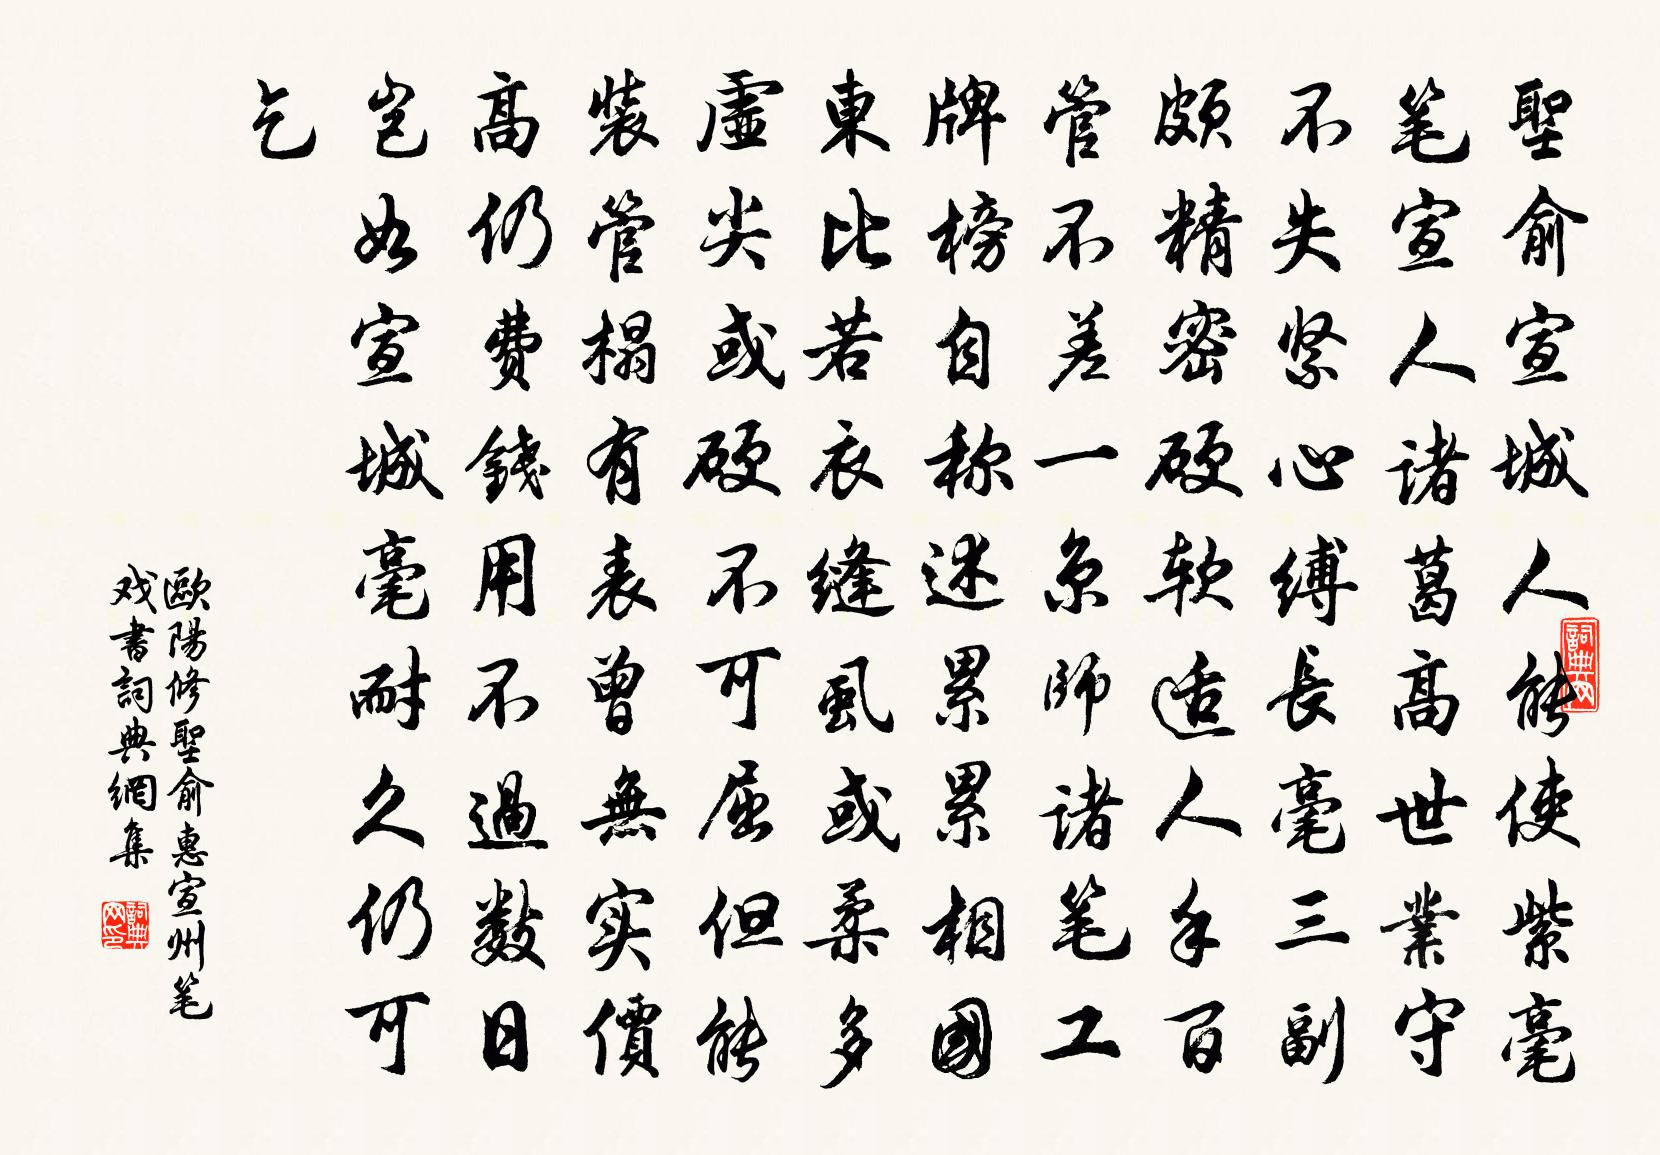 聖俞宣城人能使紫毫
笔宣人諸葛高世業守
不失紧心縛長毫三副
頗精密硬软适人手百
管不差一京師諸笔工
牌榜自称述累累相國
東比若衣縫虱或柔多
虛尖或硬不可屈但能
裝管榻有表曾無实價
高仍費錢用不過数日
岂如宣城毫耐久仍可
乞
歐陽修聖俞惠宣州笔
戏書詞典網集
詞典网
詞典网印